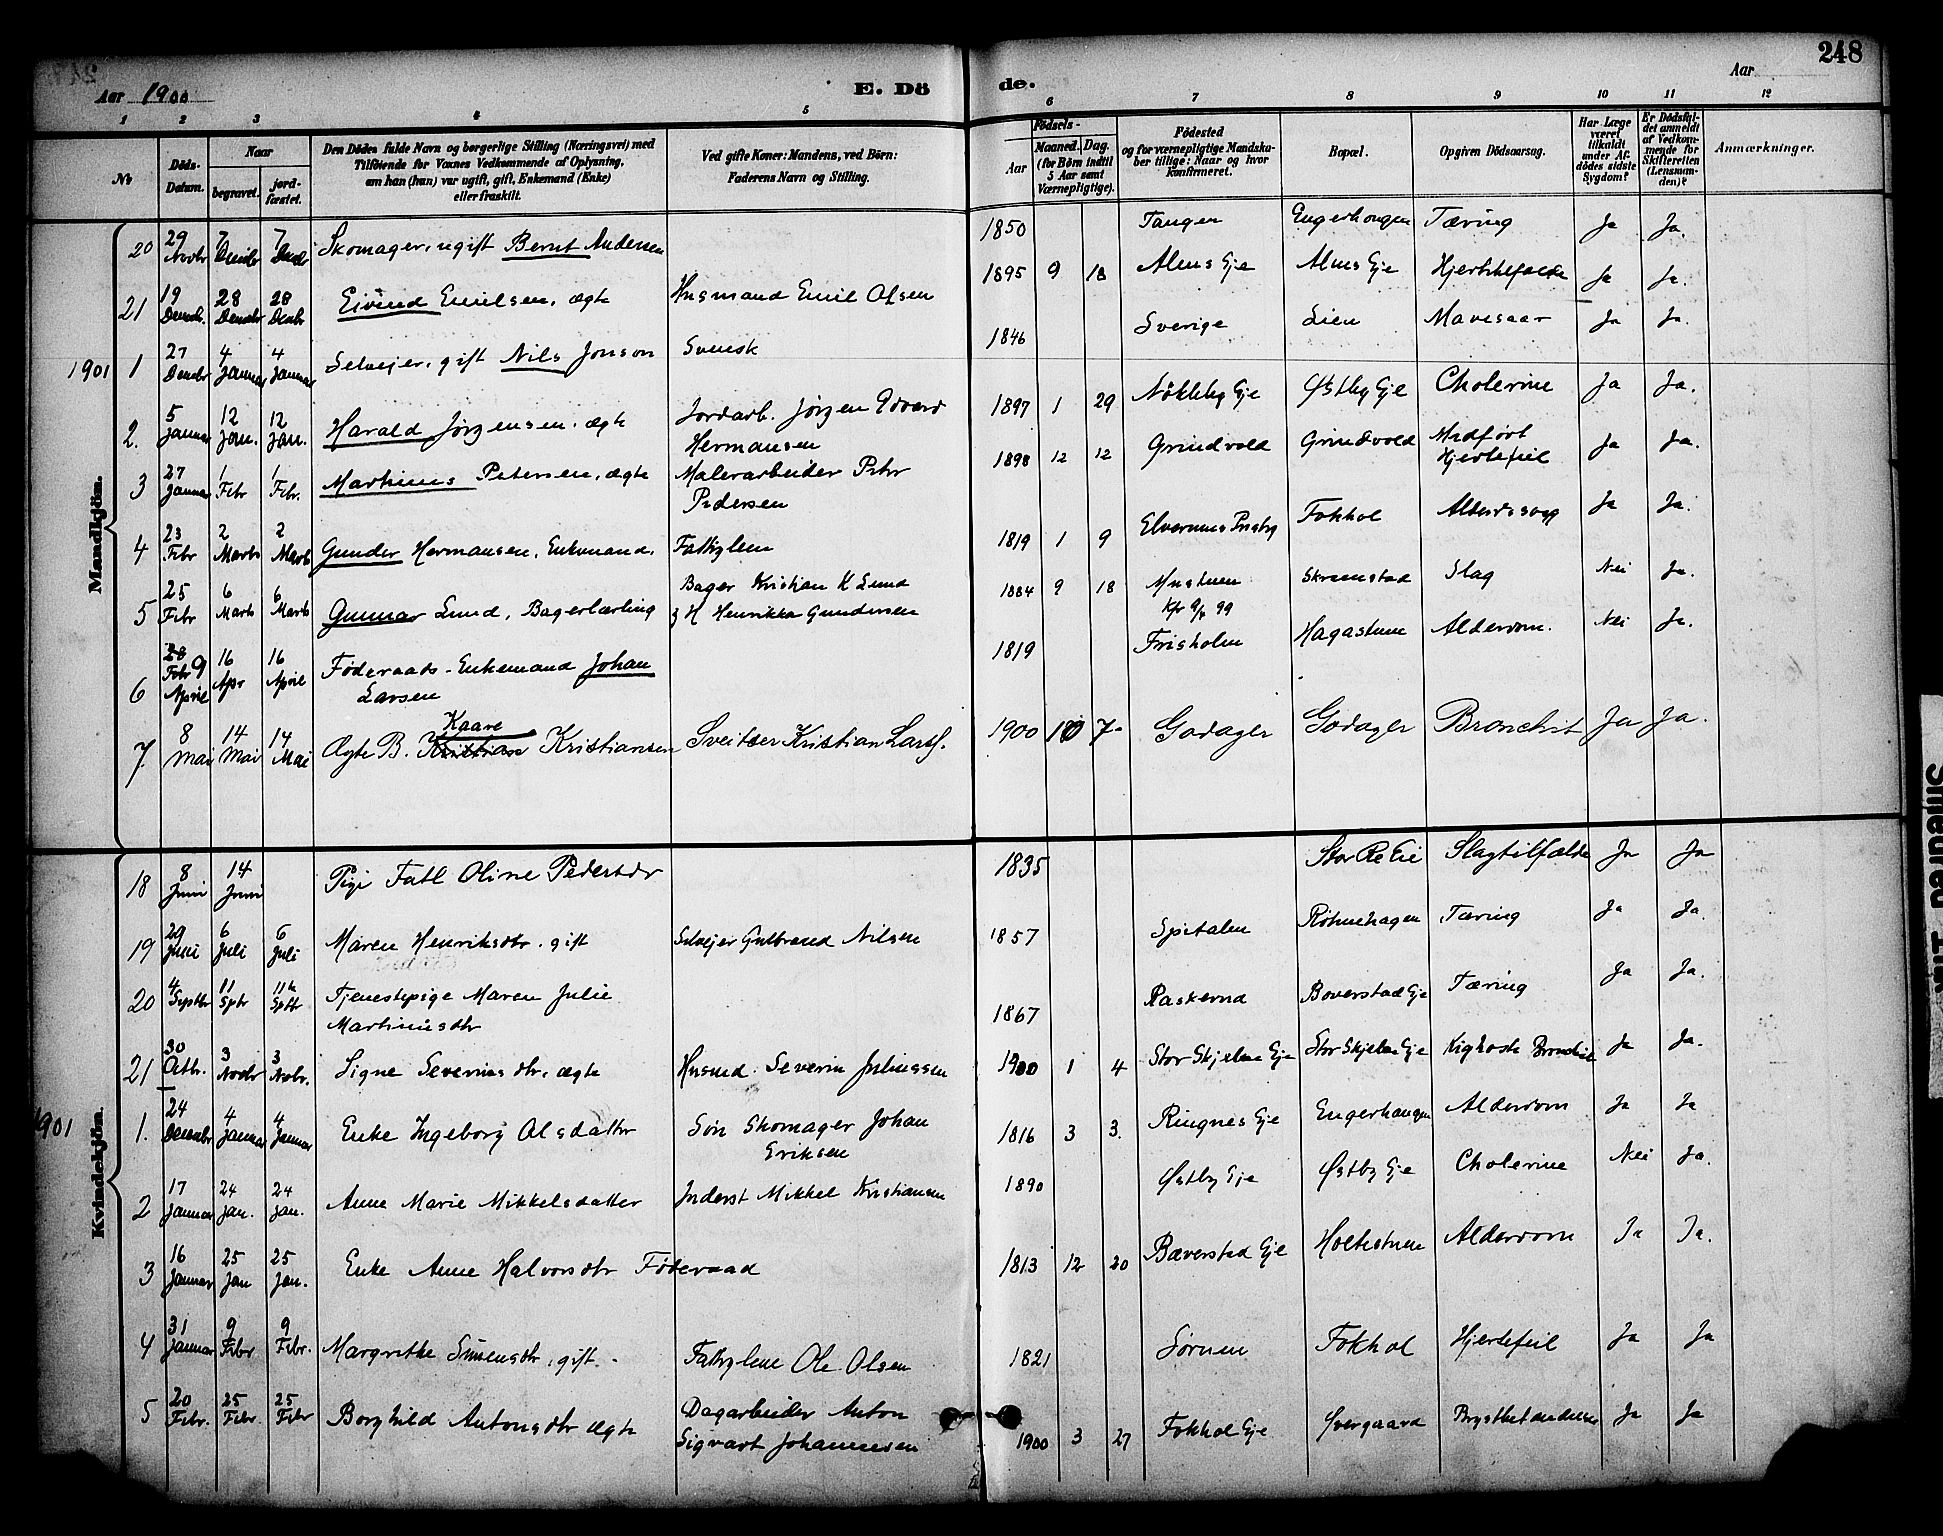 248
Aar 1900
E. Dö de.
Aar
1 2 3 4 5 6 7 8 9 10 11 12
№
Döds-Datum.
Naar begravet. jord-fæstet.
Den Dödes fulde Navn og borgerlige Stilling (Næringsvei) med Tilföiende for Voxnes Vedkommende af Oplysning, om han (hun) var ugift, gift, Enkemand (Enke) eller fraskilt.
Ved gifte Koner: Mandens, ved Börn: Faderens Navn og Stilling.
Födsels- Aar Maaned. Dag. (for Börn indtil 5 Aar samt Værnepligtige).
Födested og for værnepligtige Mandskaber tillige: Naar og hvor konfirmeret.
Bopæl.
Opgiven Dödsaarsag.
Har Læge været tilkaldt under Afdödes sidste Sygdom?
Er Dödsfaldet anmeldt af Vedkommende for Skifteretten (Lensmanden)?
Anmærkninger.
Mandkjön.
20 29 Novbr 7 Decembr 7 Decbr Skomager, ugift Bernt Andersen 1850 Tangen Engerhougen Tæring Ja Ja.
21 19 Decemb. 28 Decmbr 28 Decbr Eivind Emilsen, ægte Husmand Emil Olsen 1895 9 18 Alms Eje Alms Eje Ja Ja.
1901 1 27 Decmbr 4 Januar 4 Januar Selvejer, gift Nils Jonson Svensk 1846 Sverige Lien Mavesaar Ja Ja.
2. 5 Januar 12 Jan. 12 Jan. Harald Jørgensen, ægte Jordarb. Jørgen Edvard Hermansen 1897 1 29 Nökleby Eje Østby Eje Cholerine Ja Ja.
3 27 Januar 1 Febr 1 Febr. Martinus Petersen, ægte Malerarbeider Petr Pedersen 1898 12 12 Grindvold Grindvold Medført Hjertefeil Ja Ja.
4 23 Febr 2 Marts 2 Marts Gunder Hermansen, Enkemand. Fattiglem 1819 1 9 Elverums Prstg Fokhol Alderdsvag Ja Ja.
5 25 Febr 6 Marts 6 Marts Gunnar Lund, Bagerlærling Bager Kristian K Lund & H Henrikka Gundersen 1884 9 18 Mustuen Kfr 9/7 99 Skremstad Slag Nei Ja.
6 28 Febr 9 April 16 Apr 16 April Føderaads-Enkemand Johan Larsen 1819 Frisholm Hagastuen Alderdom. Nei Ja.
7. 8 Mai 14 Mai 14 Mai Ægte B. Kristian Kaare Kristiansen Sveitser Kristian Lars. 1900 10 7 Godager Godager Bronchit Ja Ja.
Kvindekjön.
18 8 Juni 14 Juni Pige Fatl Oline Pedersdr 1835 Stor Re Eie Slagtilfælde Ja Ja
19 29 Juni 6 Juli 6 Juli Maren Henriksdtr. gift Selvejer Gulbrand Nilsen 1857 Spitalen Röhnehagen Tæring Ja Ja.
20 4 Septbr 11 Sptr 11te Sptbr Tjenestepige Maren Julie Martinusdtr 1867 Raskerud Boverstad Eje Tæring Ja Ja.
21 30 Octbr. 3 Novbr 3 Novbr. Signe Severinsdtr, ægte Husmd. Severin Juliussen 1900 1 4 Stor Skjelve Eje Stor Skjelve Eje Kighoste Bronchit Ja Ja.
1901 1. 24 Decembr 4 Januar 4 Januar Enke Ingeborg Olsdatter Søn Skomager Johan Eriksen 1816 3 3. Ringnes Eje Engerhaugen Alderdom Ja Ja
2 17 Januar 24 Jan. 24 Jan. Anne Marie Mikkelsdatter Inderst Mikkel Kristiansen 1890 Østby Eje Østby Eje Cholerine Nei Ja.
3 16 Januar 25 Jan 25 Jan. Enke Anne Halvorsdtr Föderaad 1813 12 20 Bæverstad Eje Holtestuen Alderdom Ja Ja.
4 31 Januar 9 Febr 9 Febr. Margrethe Simensdtr, gift. Fattiglem Ole Olsen 1821 Sörum Fokhol Hjertefeil Ja Ja
5 20 Febr. 25 Febr. 25 Febr Borghild Antonsdtr ægte Dagarbeider Anton Sigvart Johannesen 1900 3 27 Fokhol Eje Øvergaard Ja Ja